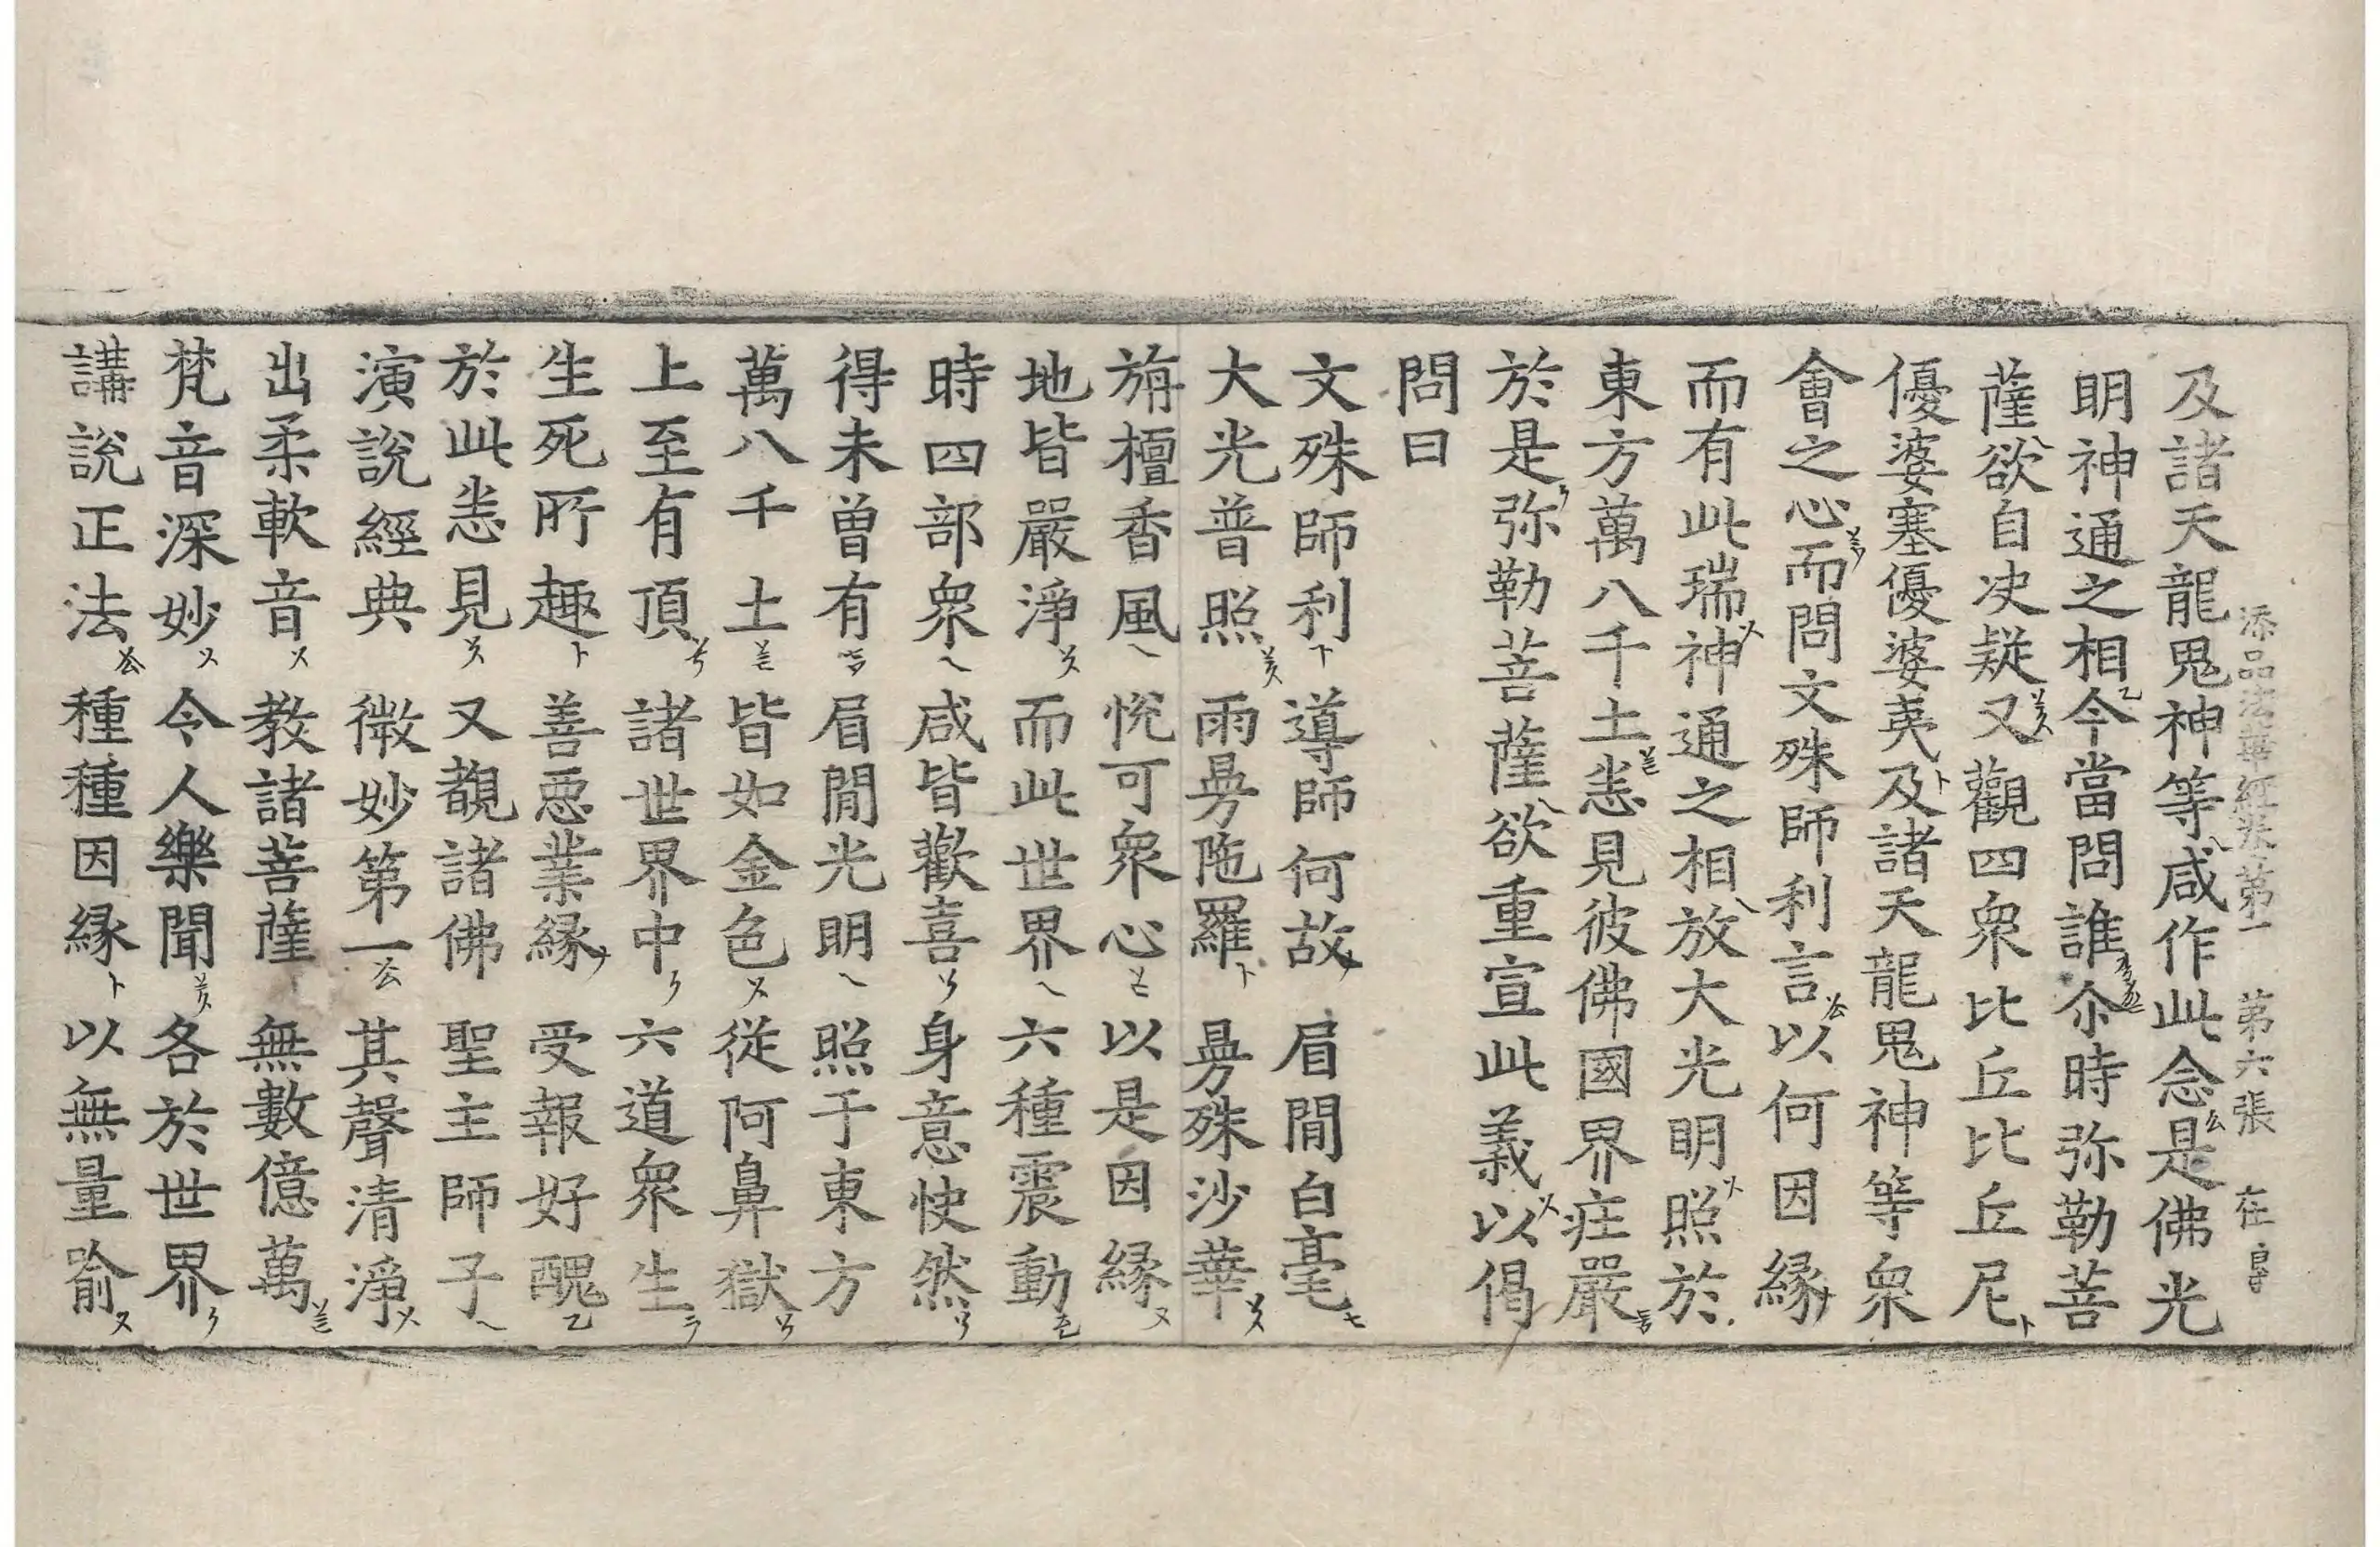 添品法華經卷第一 第六張 在
及諸天龍鬼神等咸作此念是佛光
明神通之相今當問誰尒時弥勒菩
薩欲自决疑又觀四衆比丘比丘尼
優婆塞優婆夷及諸天龍鬼神等衆
會之心而問文殊師利言以何因緣
而有此瑞神通之相放大光明照於
東方萬八千土悉見彼佛國界莊嚴
於是弥勒菩薩欲重宣此義以偈
問曰
文殊師利 導師何故 眉間白毫
大光普照 雨曼陁羅 曼殊沙華
栴檀香風 悅可衆心 以是因緣
地皆嚴淨 而此世界 六種震動
時四部衆 咸皆歡喜 身意快然
得未曾有 眉間光明 照于東方
萬八千土 皆如金色 從阿鼻獄
上至有頂 諸世界中 六道衆生
生死所趣 善惡業緣 受報好醜
於此悉見 又覩諸佛 聖主師子
演說經典 微妙第一 其聲清淨
出柔軟音 教諸菩薩 無數億萬
梵音深妙 令人樂聞 各於世界
講說正法 種種因緣 以無量喻